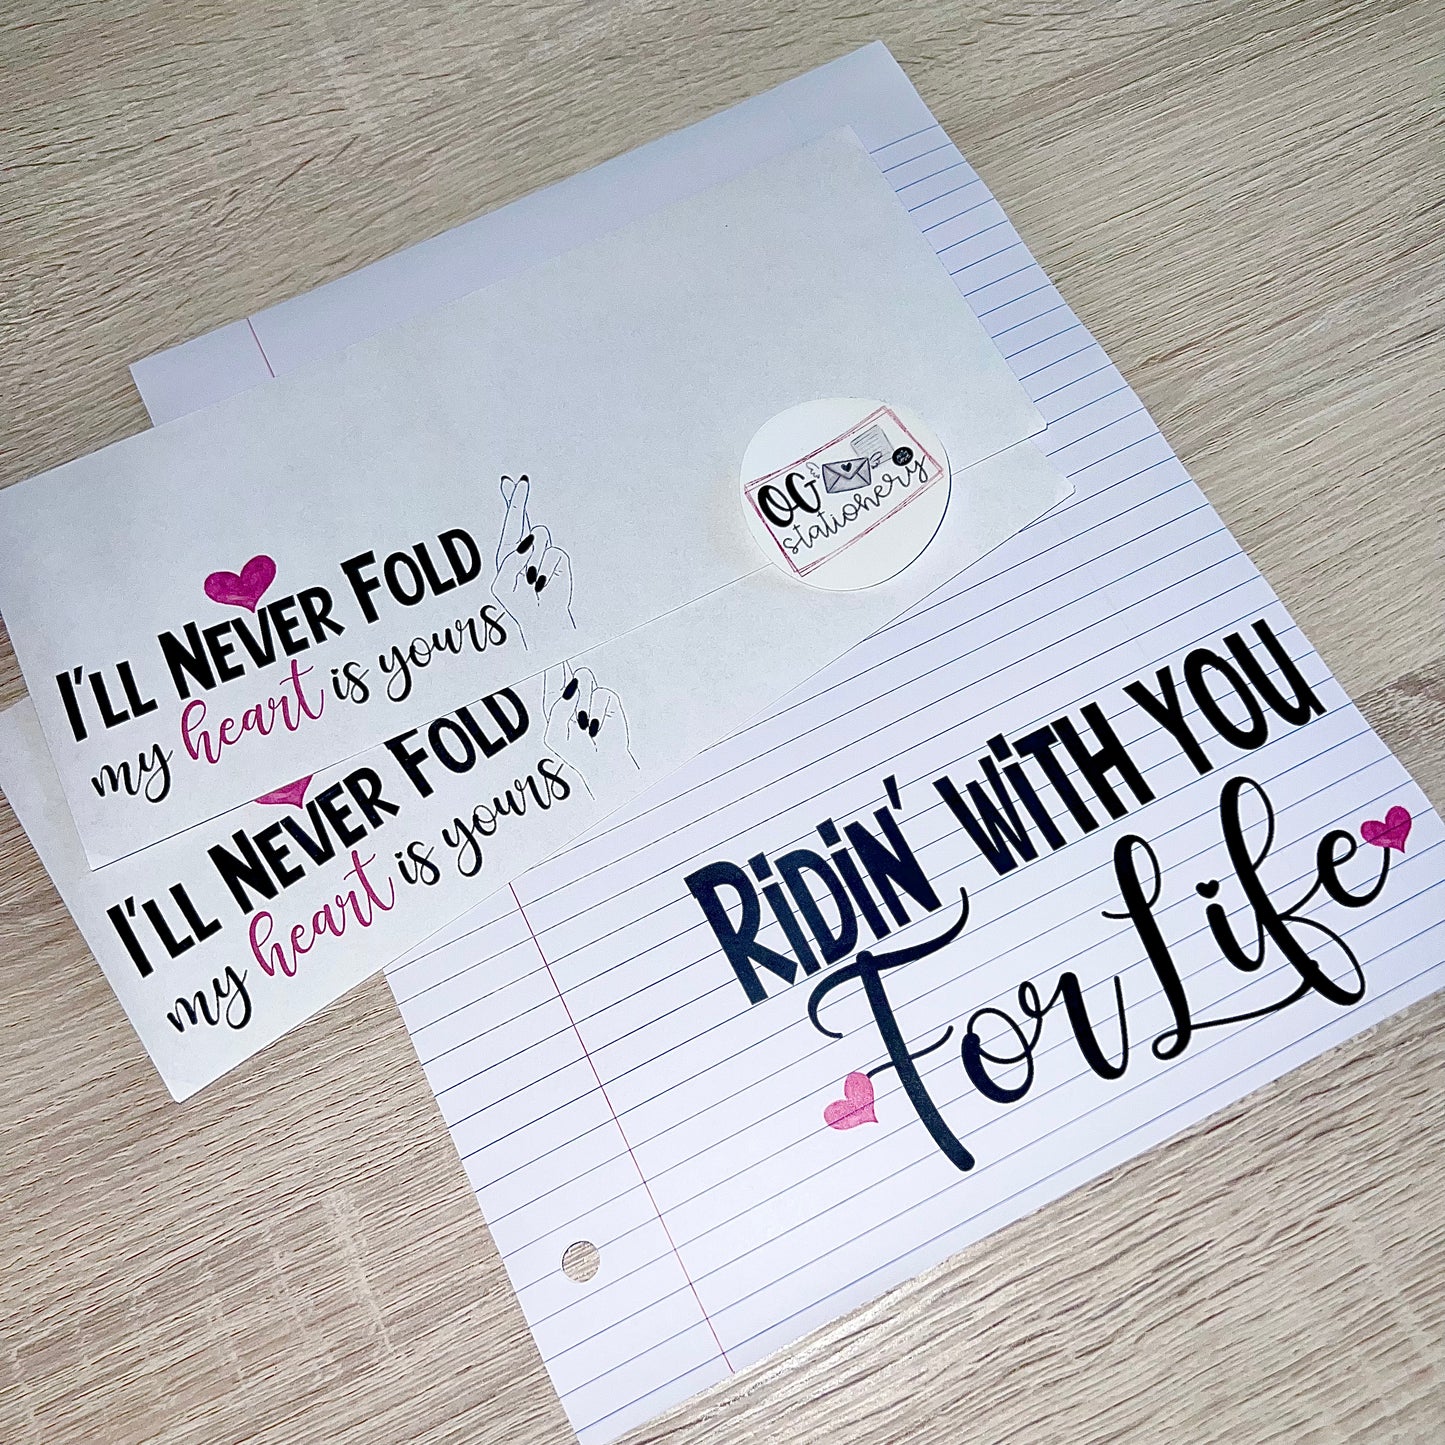 I'LL NEVER FOLD
my heart is yours
I'LL NEVER FOLD
my heart is yours
OG
stationery
RiDiN' WiTH YOU
For Life